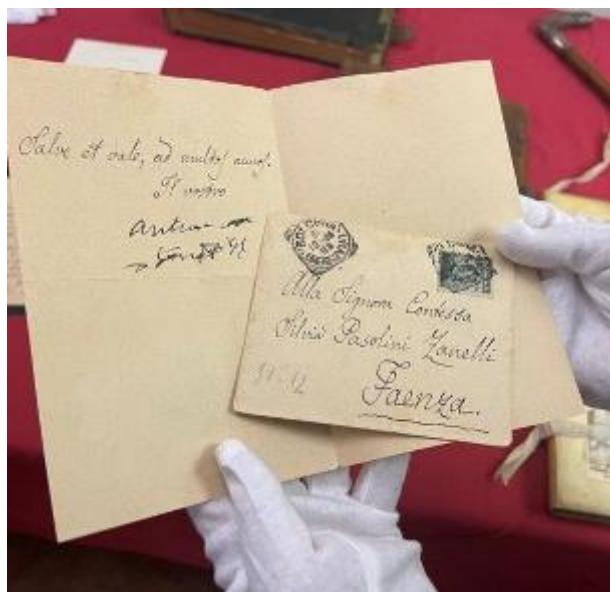 Salve et vale, ad multos annos.
Il vostro
Alla Signora Contessa
Silvia Pasolini Zanelli
Faenza.